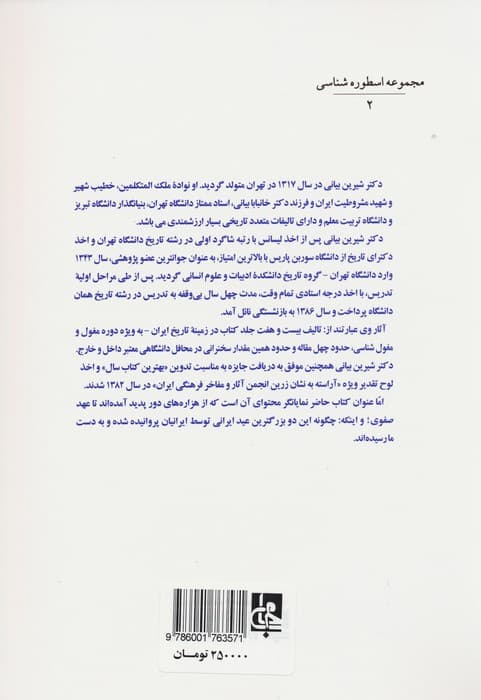 مجموعه اسطوره شناسی
۲
دکتر شیرین بیانی در سال ۱۳۱۷ در تهران متولد گردید. او نوادهٔ ملک المتکلمین، خطیب شهیر
و شهید مشروطیت ایران و فرزند دکتر خانبابا بیانی، استاد ممتاز دانشگاه تهران، بنیانگذار دانشگاه تبریز
و دانشگاه تربیت معلم و دارای تالیفات متعدد تاریخی بسیار ارزشمندی می باشد.
دکتر شیرین بیانی پس از اخذ لیسانس با رتبه شاگرد اولی در رشته تاریخ دانشگاه تهران و اخذ
دکترای تاریخ از دانشگاه سوربن پاریس با بالاترین امتیاز، به عنوان جوانترین عضو پژوهشی، سال ۱۳۴۳
وارد دانشگاه تهران - گروه تاریخ دانشکدهٔ ادبیات و علوم انسانی گردید. پس از طی مراحل اولیهٔ
تدریس، با اخذ درجه استادی تمام وقت، مدت چهل سال بی‌وقفه به تدریس در رشته تاریخ همان
دانشگاه پرداخت و سال ۱۳۸۶ به بازنشستگی نائل آمد.
آثار وی عبارتند از: تالیف بیست و هفت جلد کتاب در زمینهٔ تاریخ ایران - به ویژه دوره مغول و
مغول شناسی، حدود چهل مقاله و حدود همین مقدار سخنرانی در محافل دانشگاهی معتبر داخل و خارج.
دکتر شیرین بیانی همچنین موفق به دریافت جایزه به مناسبت تدوین «بهترین کتاب سال» و اخذ
لوح تقدیر ویژه «آراسته به نشان زرین انجمن آثار و مفاخر فرهنگی ایران» در سال ۱۳۸۲ شدند.
امّا عنوان کتاب حاضر نمایانگر محتوای آن است که از هزاره‌های دور پدید آمده‌اند تا عهد
صفوی؛ و اینکه: چگونه این دو بزرگترین عید ایرانی توسط ایرانیان پرورانیده شده و به دست
ما رسیده‌اند.
9 786001 763571
۲۵۰۰۰۰ تومـــان